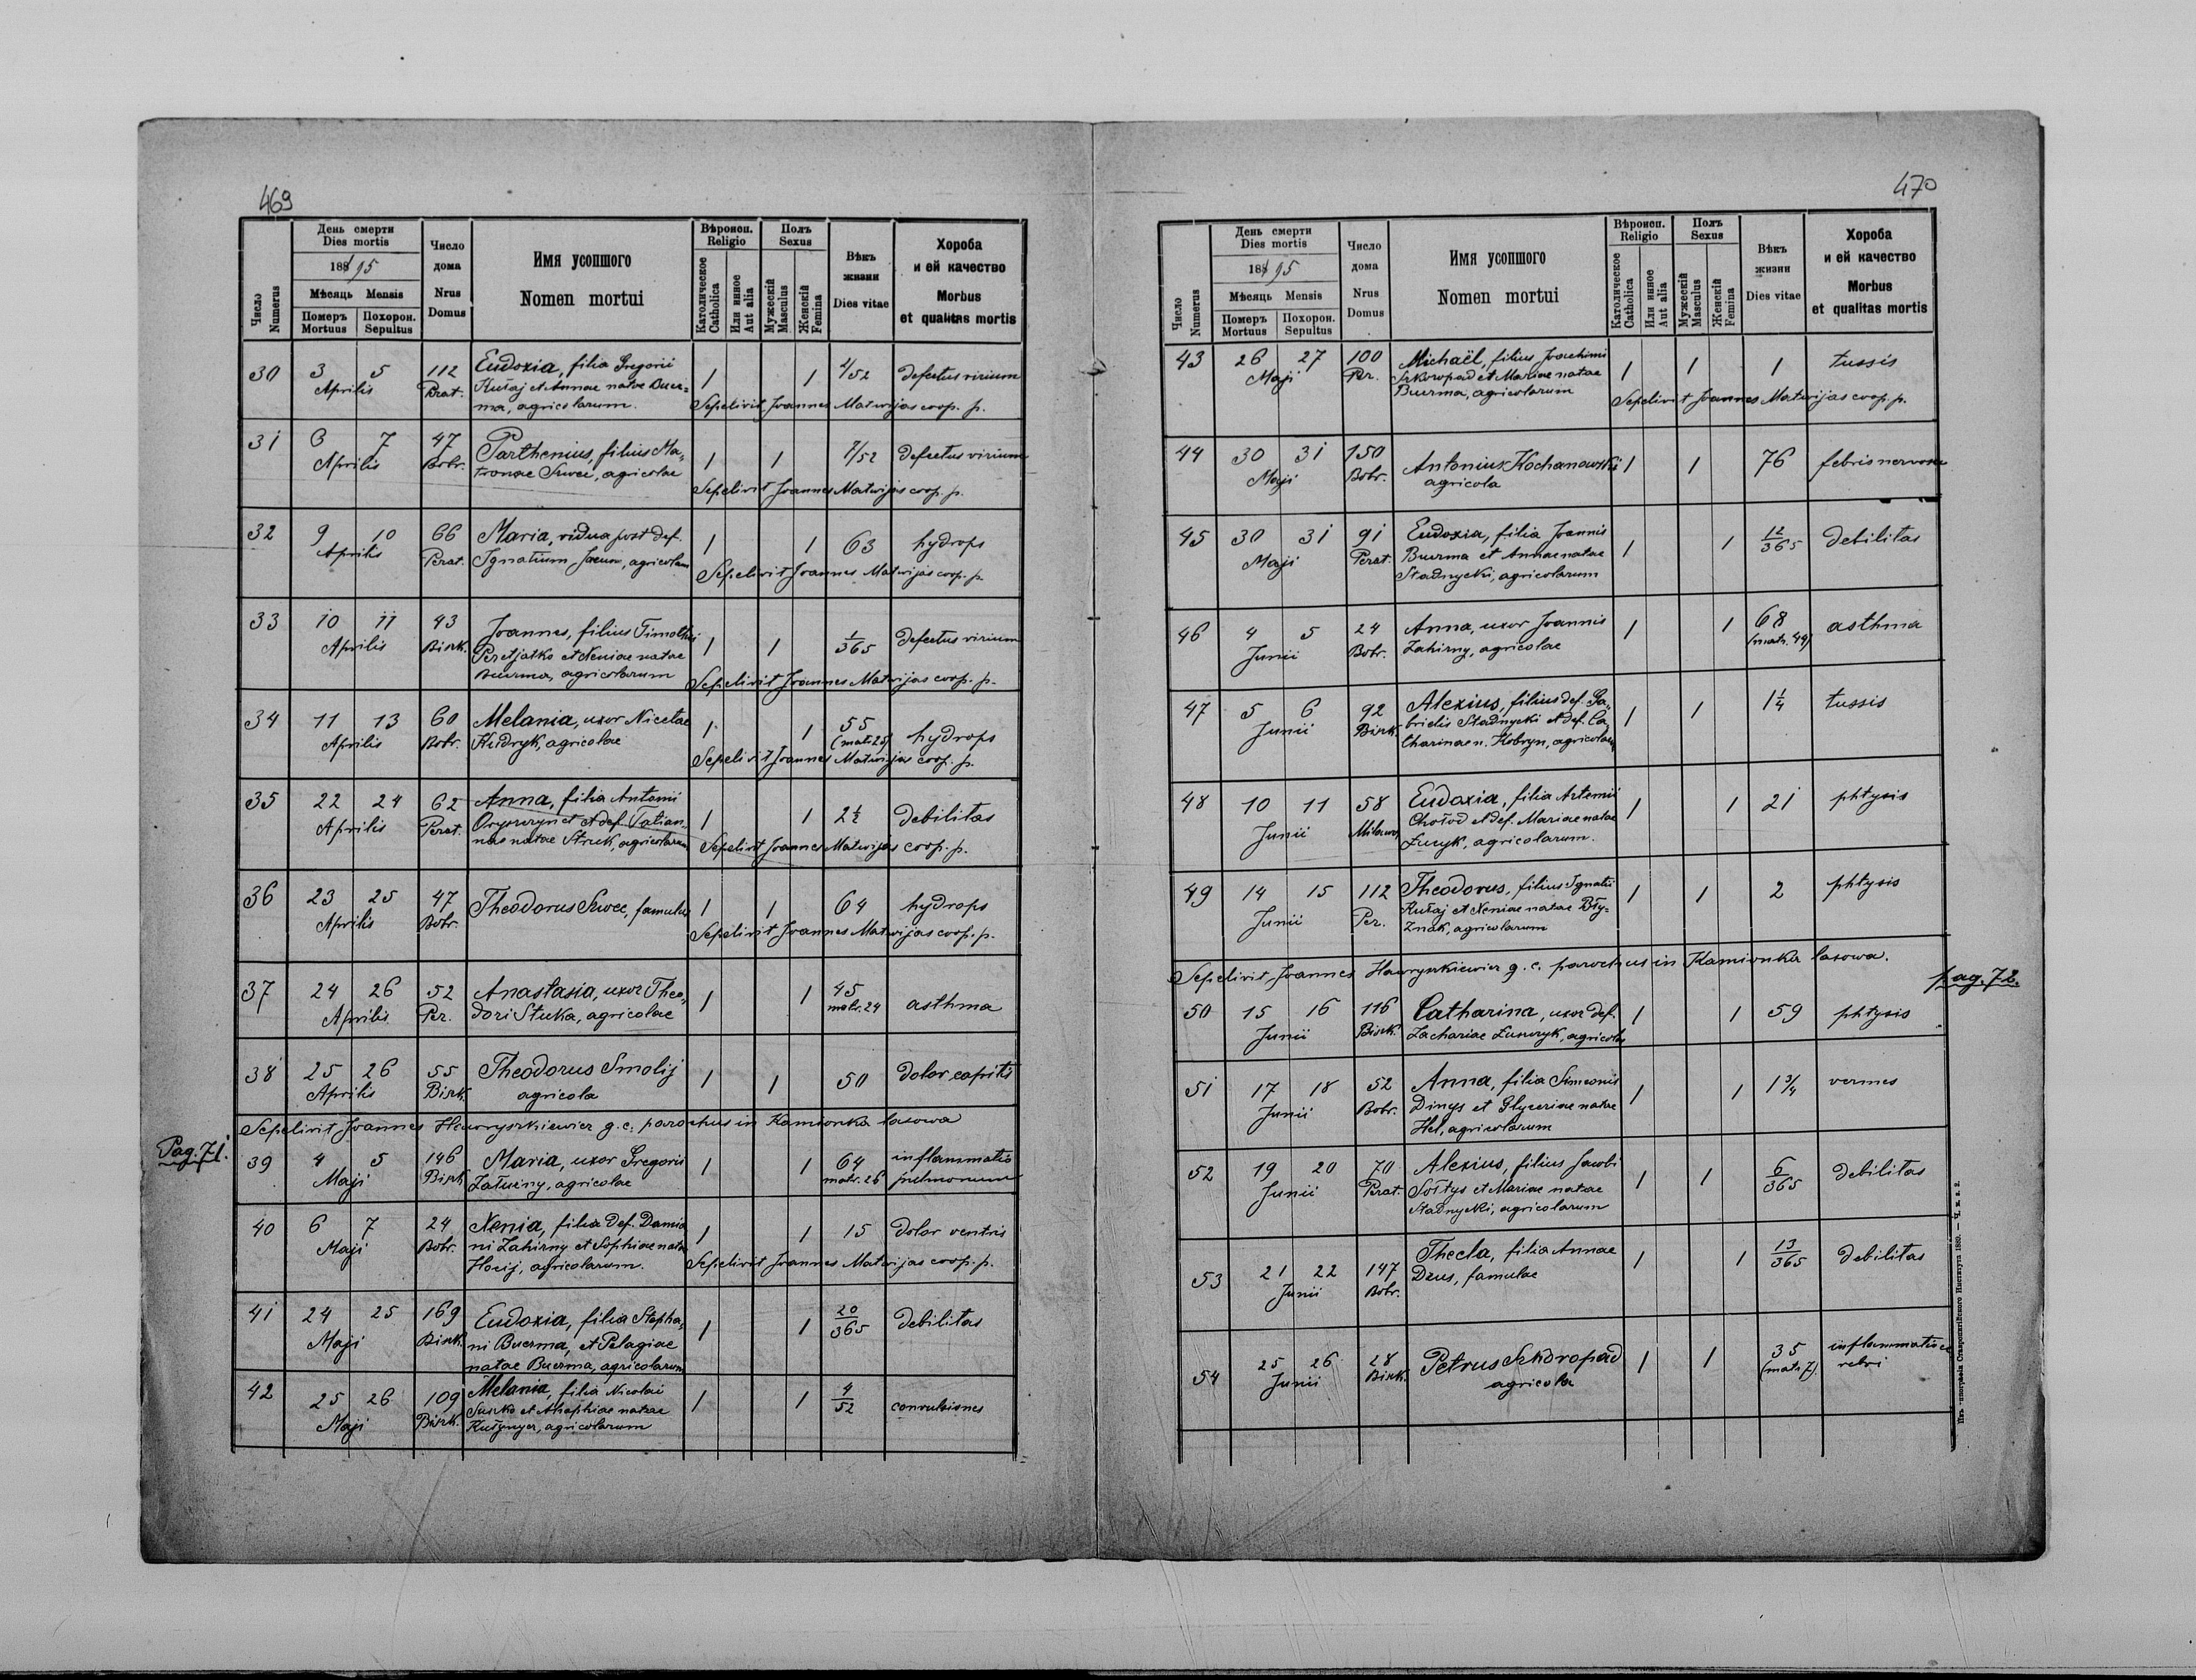 469
Число Numerus
День смерти
Dies mortis
1895
Мѣсяць Mensis
Померъ Mortuus
Похорон. Sepultus
Число дома
Nrus Domus
Имя усопшого
Nomen mortui
Вѣроисп. Religio
Католическое Catholica
Или инное Aut alia
Полъ Sexus
Мужескій Masculus
Женскій Femina
Вѣкъ жизни
Dies vitae
Хороба и ей качество
Morbus et qualitas mortis
30 3 5 112 Eudoxia, filia Gregorii 1 1 4/52 defectus virium
Aprilis Perat. Kułaj et Annae natae Buer-
ma, agricolarum. Sepelivit Joannes Matwijas coop. p.
31 6 7 47 Parthenius, filius Ma- 1 1 2/52 defectus virium
Aprilis Bobr. tronae Szwec, agricolae
Sepelivit Joannes Matwijas coop. p.
32 9 10 66 Maria, vidua post def. 1 1 63 hydrops
Aprilis Perat. Ignatium, agricolam
Sepelivit Joannes Matwijas coop. p.
33 10 11 43 Joannes, filius Timothei 1 1 1/365 defectus virium
Aprilis Birk. Peretjatko et Xeniae natae
Buerma, agricolarum Sepelivit Joannes Matwijas coop. p.
34 11 13 60 Melania, uxor Nicetae 1 1 55 (matr. 25) hydrops
Aprilis Bobr. Kudryk, agricolae
Sepelivit Joannes Matwijas coop. p.
35 22 24 62 Anna, filia Antonii 1 1 2½ debilitas
Aprilis Perat. et def. Tatian-
nae natae Struk, agricolarum Sepelivit Joannes Matwijas coop. p.
36 23 25 47 Theodorus Szwec, famulus 1 1 64 hydrops
Aprilis Bobr. Sepelivit Joannes Matwijas coop. p.
37 24 26 52 Anastasia, uxor Theo- 1 1 45 matr. 24 asthma
Aprilis Per. dori Stuka, agricolae
38 25 26 55 Theodorus Smolij 1 1 50 dolor capitis
Aprilis Birk. agricola
Sepelivit Joannes Hawryszkiewicz g. c. parochus in Kamionka lasowa
Pag. 71.
39 4 5 146 Maria, uxor Gregorii 1 1 64 matr. 26 inflammatio
Maji Birk. Załuzny, agricolae pulmonum
40 6 7 24 Xenia, filia def. Damia- 1 1 15 dolor ventris
Maji Bobr. ni Zahirny et Sophiae natae
agricolarum. Sepelivit Joannes Matwijas coop. p.
41 24 25 169 Eudoxia, filia Stepha- 1 1 20/365 debilitas
Maji Birk. ni Buerma, et Pelagiae
natae Buerma, agricolarum
42 25 26 109 Melania, filia Nicolai 1 1 4/52 convulsiones
Maji Birk. et Ahaphiae natae
agricolarum
470
Число Numerus
День смерти
Dies mortis
1895
Мѣсяць Mensis
Померъ Mortuus
Похорон. Sepultus
Число дома
Nrus Domus
Имя усопшого
Nomen mortui
Вѣроисп. Religio
Католическое Catholica
Или инное Aut alia
Полъ Sexus
Мужескій Masculus
Женскій Femina
Вѣкъ жизни
Dies vitae
Хороба и ей качество
Morbus et qualitas mortis
43 26 27 100 Michaël, filius Joachimi 1 1 1 tussis
Maji Per. Szkoropad et Mariae natae
Buerma, agricolarum Sepelivit Joannes Matwijas coop. p.
44 30 31 150 Antonius Kochanowski 1 1 76 febris nervosa
Maji Bobr. agricola
45 30 31 91 Eudoxia, filia Joannis 1 1 12/365 debilitas
Maji Perat. Buerma et Annae natae
Stadnycki, agricolarum
46 4 5 24 Anna, uxor Joannis 1 1 68 (matr. 49) asthma
Junii Bobr. Zahirny, agricolae
47 5 6 92 Alexius, filius def. Ga- 1 1 1¼ tussis
Junii Birk. brielis Stadnycki et def. Ca-
tharinae n. Kobryn, agricolarum
48 10 11 58 Eudoxia, filia Artemii 1 1 21 phtysis
Junii Chołod et def. Mariae natae
Łucyk, agricolarum.
49 14 15 112 Theodorus, filius Ignatii 1 1 2 phtysis
Junii Per. Kułaj et Xeniae natae Bły-
znak, agricolarum
Sepelivit Joannes Hawryszkiewicz g. c. parochus in Kamionka lasowa.
pag. 72.
50 15 16 116 Catharina, uxor def. 1 1 59 phtysis
Junii Birk. Zachariae agricolae
51 17 18 52 Anna, filia Simeonis 1 1 1¾ vermes
Junii Bobr. Dinys et Glyceriae natae
Hel, agricolarum
52 19 20 70 Alexius, filius Jacobi 1 1 6/365 debilitas
Junii Perat. Sołtys et Mariae natae
Stadnycki, agricolarum
53 21 22 147 Thecla, filia Annae 1 1 13/365 debilitas
Junii Bobr. Dzus, famulae
54 25 26 28 Petrus Szkoropad 1 1 35 (matr. 7) inflammatio ce-
Junii Birk. agricola rebri
Изъ типографіи Ставропигійского Института 1889. — Ч. к. в. 2.